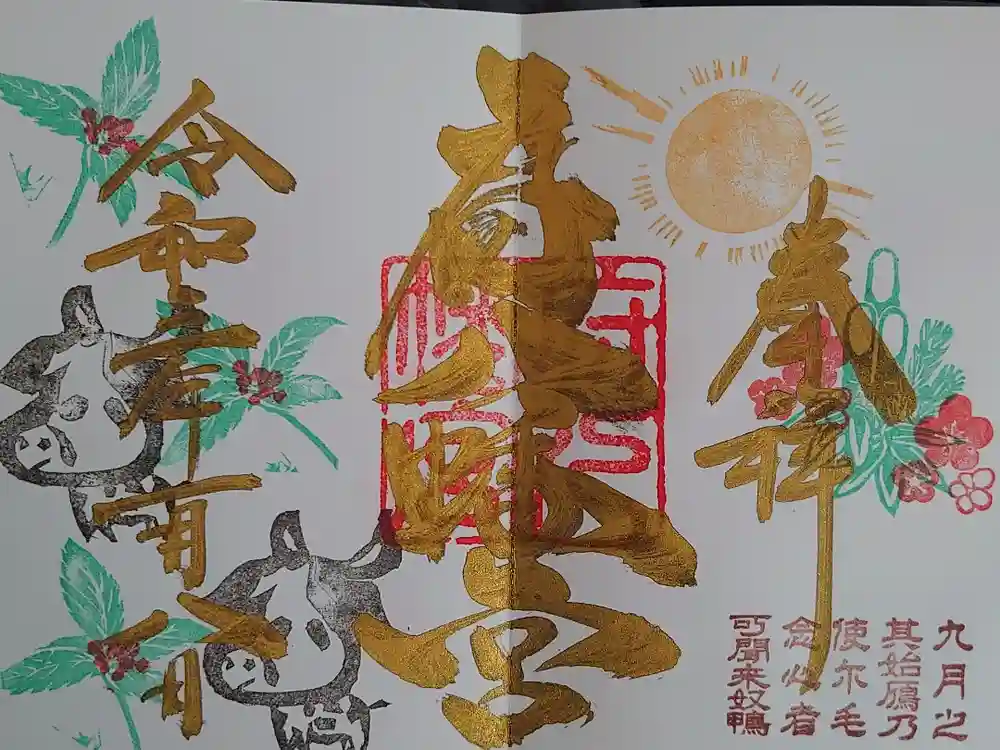 奉拝
府八幡宮
令和三年
一月
八日
九月之
其始鴈乃
使尓毛
念心者
可聞来奴鴨